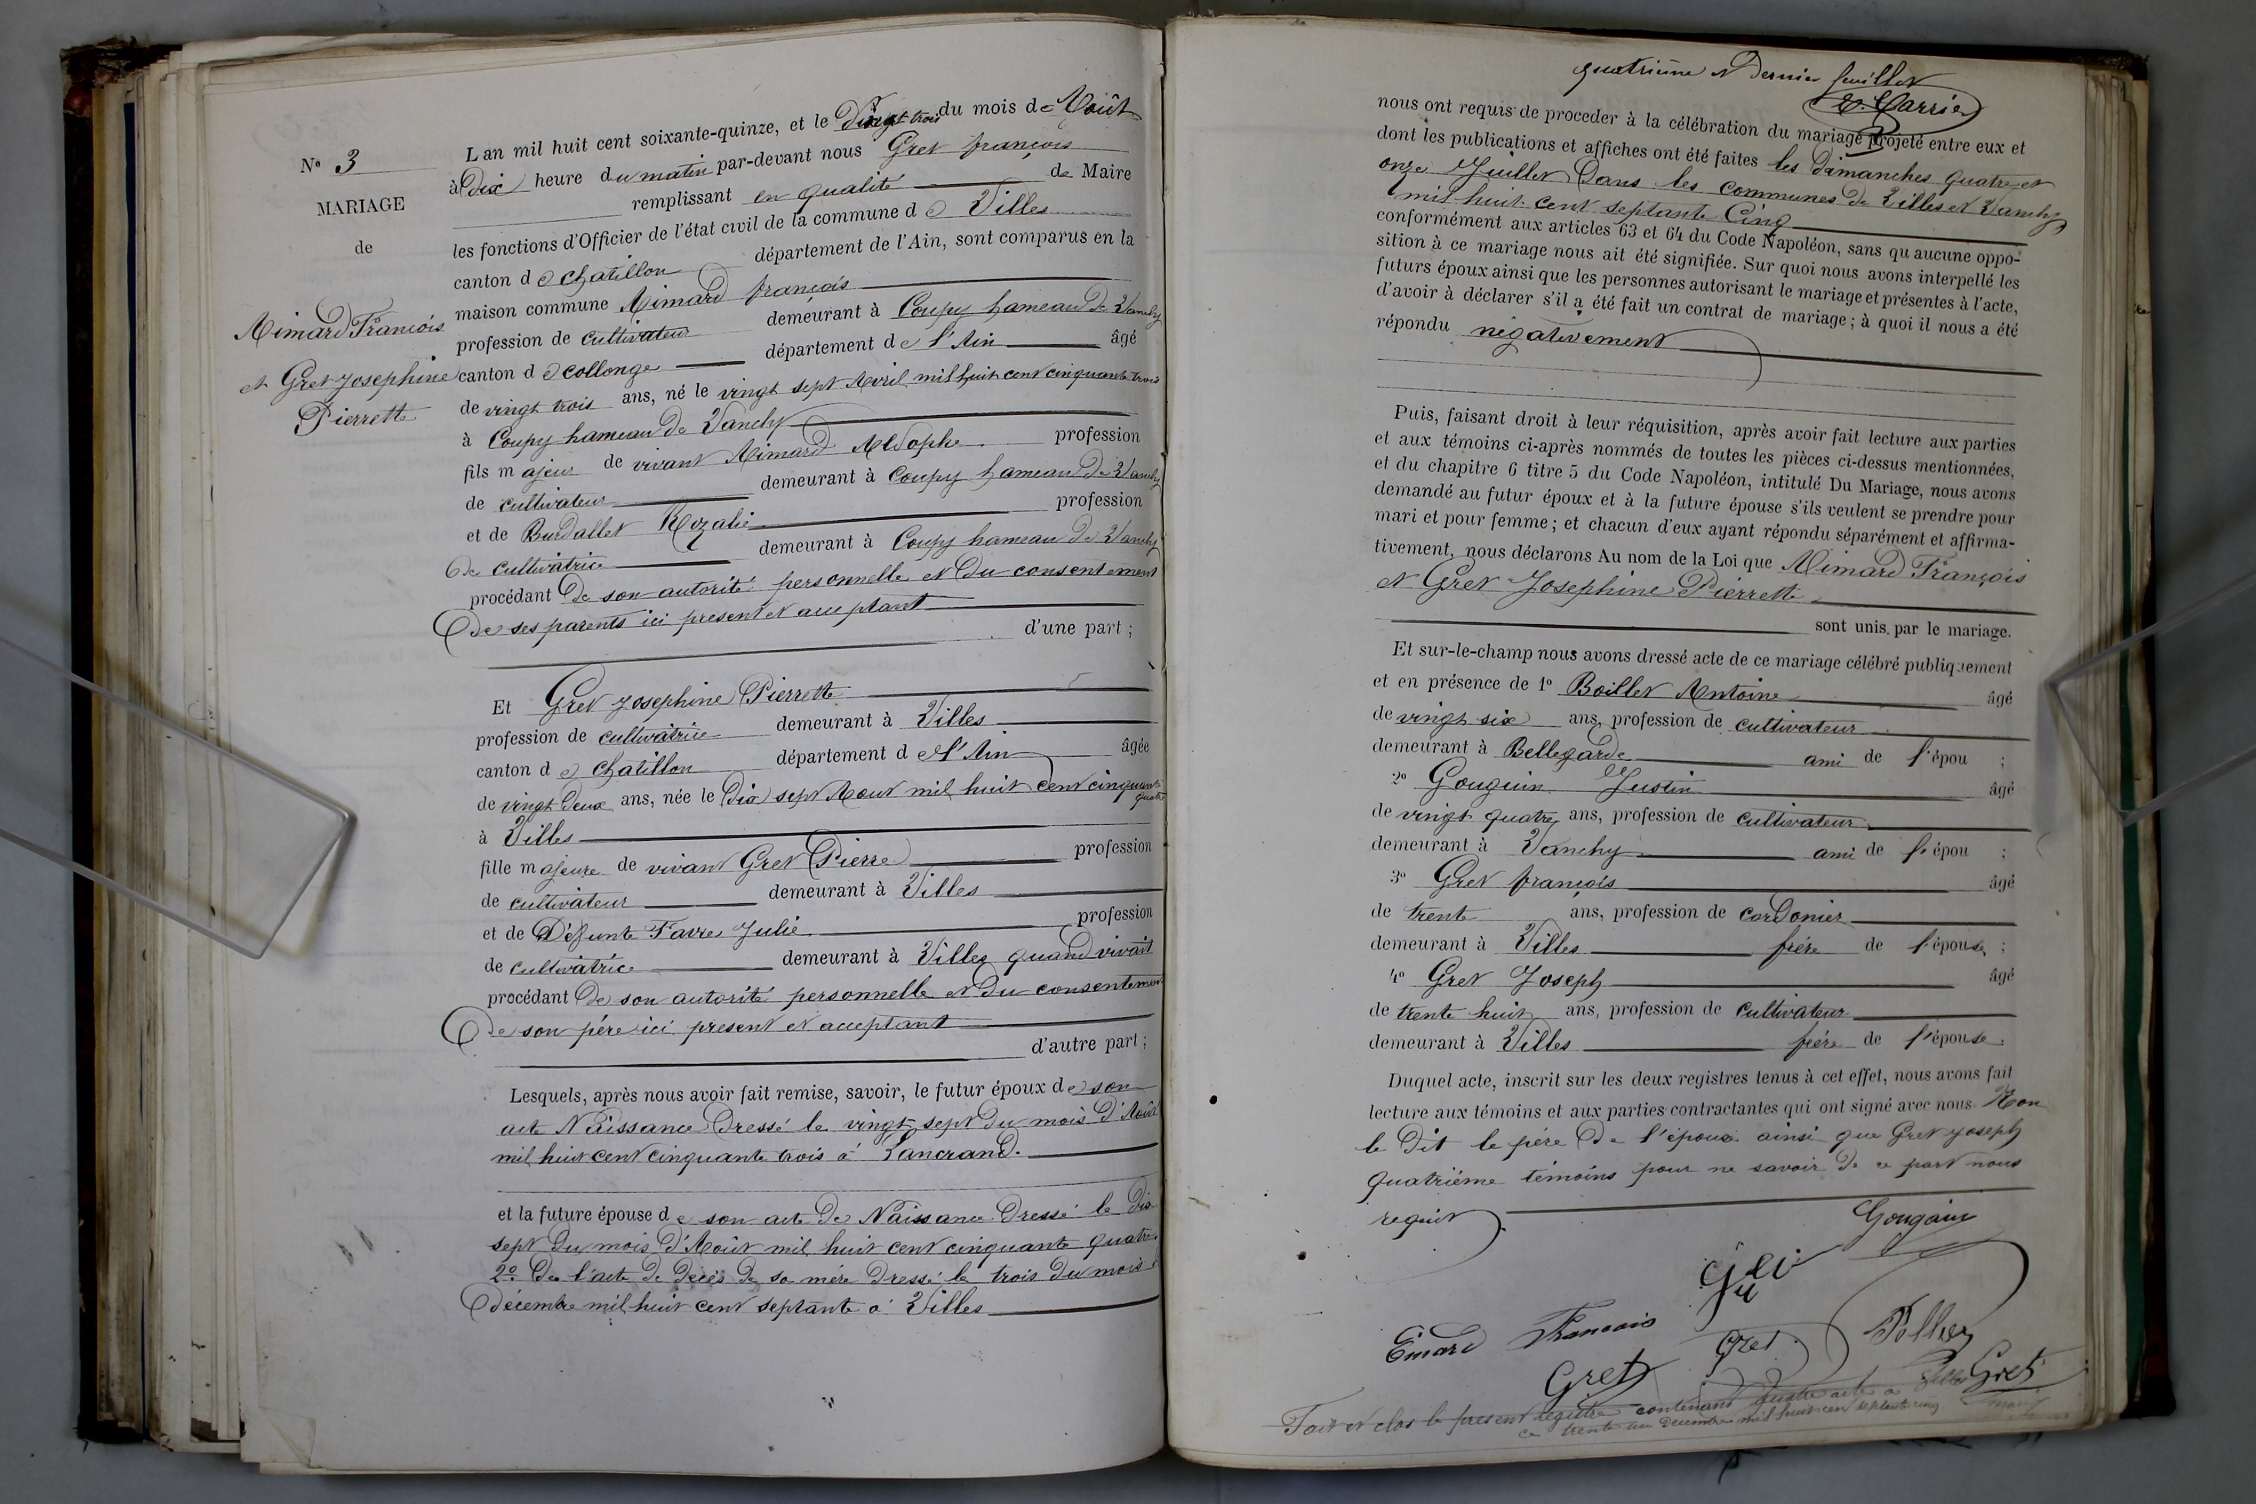 N° 3
MARIAGE
de
Aimard François
et Gret Josephine
Pierrette
L'an mil huit cent soixante-quinze, et le vingt trois du mois de Août
à dix heure du matin par-devant nous Gret françois
remplissant en qualité de Maire
les fonctions d'Officier de l'état civil de la commune de Villes
canton de chatillon département de l'Ain, sont comparus en la
maison commune Aimard françois
profession de cultivateur demeurant à Coupy hameau de Vanchy
canton de collonge département de l'Ain âgé
de vingt trois ans, né le vingt sept Avril mil huit cent cinquante trois
à Coupy hameau de Vanchy
fils majeur de vivant Aimard Aldophe profession
de cultivateur demeurant à Coupy hameau de Vanchy
et de Burdallet Rozalie profession
de cultivatrice demeurant à Coupy hameau de Vanchy
procédant de son autorité personnelle et du consentement
de ses parents ici present et acceptant
d'une part ;
Et Gret Josephine Pierrette
profession de cultivatrice demeurant à Villes
canton de chatillon département de l'Ain âgée
de vingt deux ans, née le dix sept Aout mil huit cent cinquante
quatre
à Villes
fille majeure de vivant Gret Pierre profession
de cultivateur demeurant à Villes
et de Défunte Favre Julie profession
de cultivatrice demeurant à Villes quand vivait
procédant de son autorité personnelle et du consentement
de son père ici present et acceptant
d'autre part ;
Lesquels, après nous avoir fait remise, savoir, le futur époux de son
acte Naissance Dressé le vingt sept du mois d'Août
mil huit cent cinquante trois à Lancrand.
et la future épouse de son acte de Naissance Dressé le dix
sept du mois d'Août mil huit cent cinquante quatre
2° De l'acte de décès de sa mère Dressé le trois du mois
décembre mil huit cent septante à Villes
quatrième et dernier feuillet
nous ont requis de proceder à la célébration du mariage projeté entre eux et
dont les publications et affiches ont été faites les dimanches quatre et
onze Juillet dans les communes de Villes et Vanchy
mil huit cent septante cinq
conformément aux articles 63 et 64 du Code Napoléon, sans qu'aucune oppo-
sition à ce mariage nous ait été signifiée. Sur quoi nous avons interpellé les
futurs époux ainsi que les personnes autorisant le mariage et présentes à l'acte,
d'avoir à déclarer s'il a été fait un contrat de mariage ; à quoi il nous a été
répondu négativement
Puis, faisant droit à leur réquisition, après avoir fait lecture aux parties
et aux témoins ci-après nommés de toutes les pièces ci-dessus mentionnées,
et du chapitre 6 titre 5 du Code Napoléon, intitulé Du Mariage, nous avons
demandé au futur époux et à la future épouse s'ils veulent se prendre pour
mari et pour femme ; et chacun d'eux ayant répondu séparément et affirma-
tivement, nous déclarons Au nom de la Loi que Aimard François
et Gret Josephine Pierrette
sont unis par le mariage.
Et sur-le-champ nous avons dressé acte de ce mariage célébré publiquement
et en présence de 1° Boillet Antoine âgé
de vingt six ans, profession de cultivateur
demeurant à Bellegarde ami de l'épou ;
2° Gouguin Justin âgé
de vingt quatre ans, profession de cultivateur
demeurant à Vanchy ami de l'épou ;
3° Gret françois âgé
de trente ans, profession de cordonier
demeurant à Villes frère de l'épouse ;
4° Gret Joseph âgé
de trente huit ans, profession de cultivateur
demeurant à Villes frère de l'épouse.
Duquel acte, inscrit sur les deux registres tenus à cet effet, nous avons fait
lecture aux témoins et aux parties contractantes qui ont signé avec nous Non
le dit le père de l'épouse ainsi que Gret Joseph
quatrième témoins pour ne savoir de ce part nous
requit
Gougain
Emard François Gret
Gret Gret
Fait et clos le present registre contenant quatre acte a Villes
ce trente un Decembre mil huit cent septante cinq